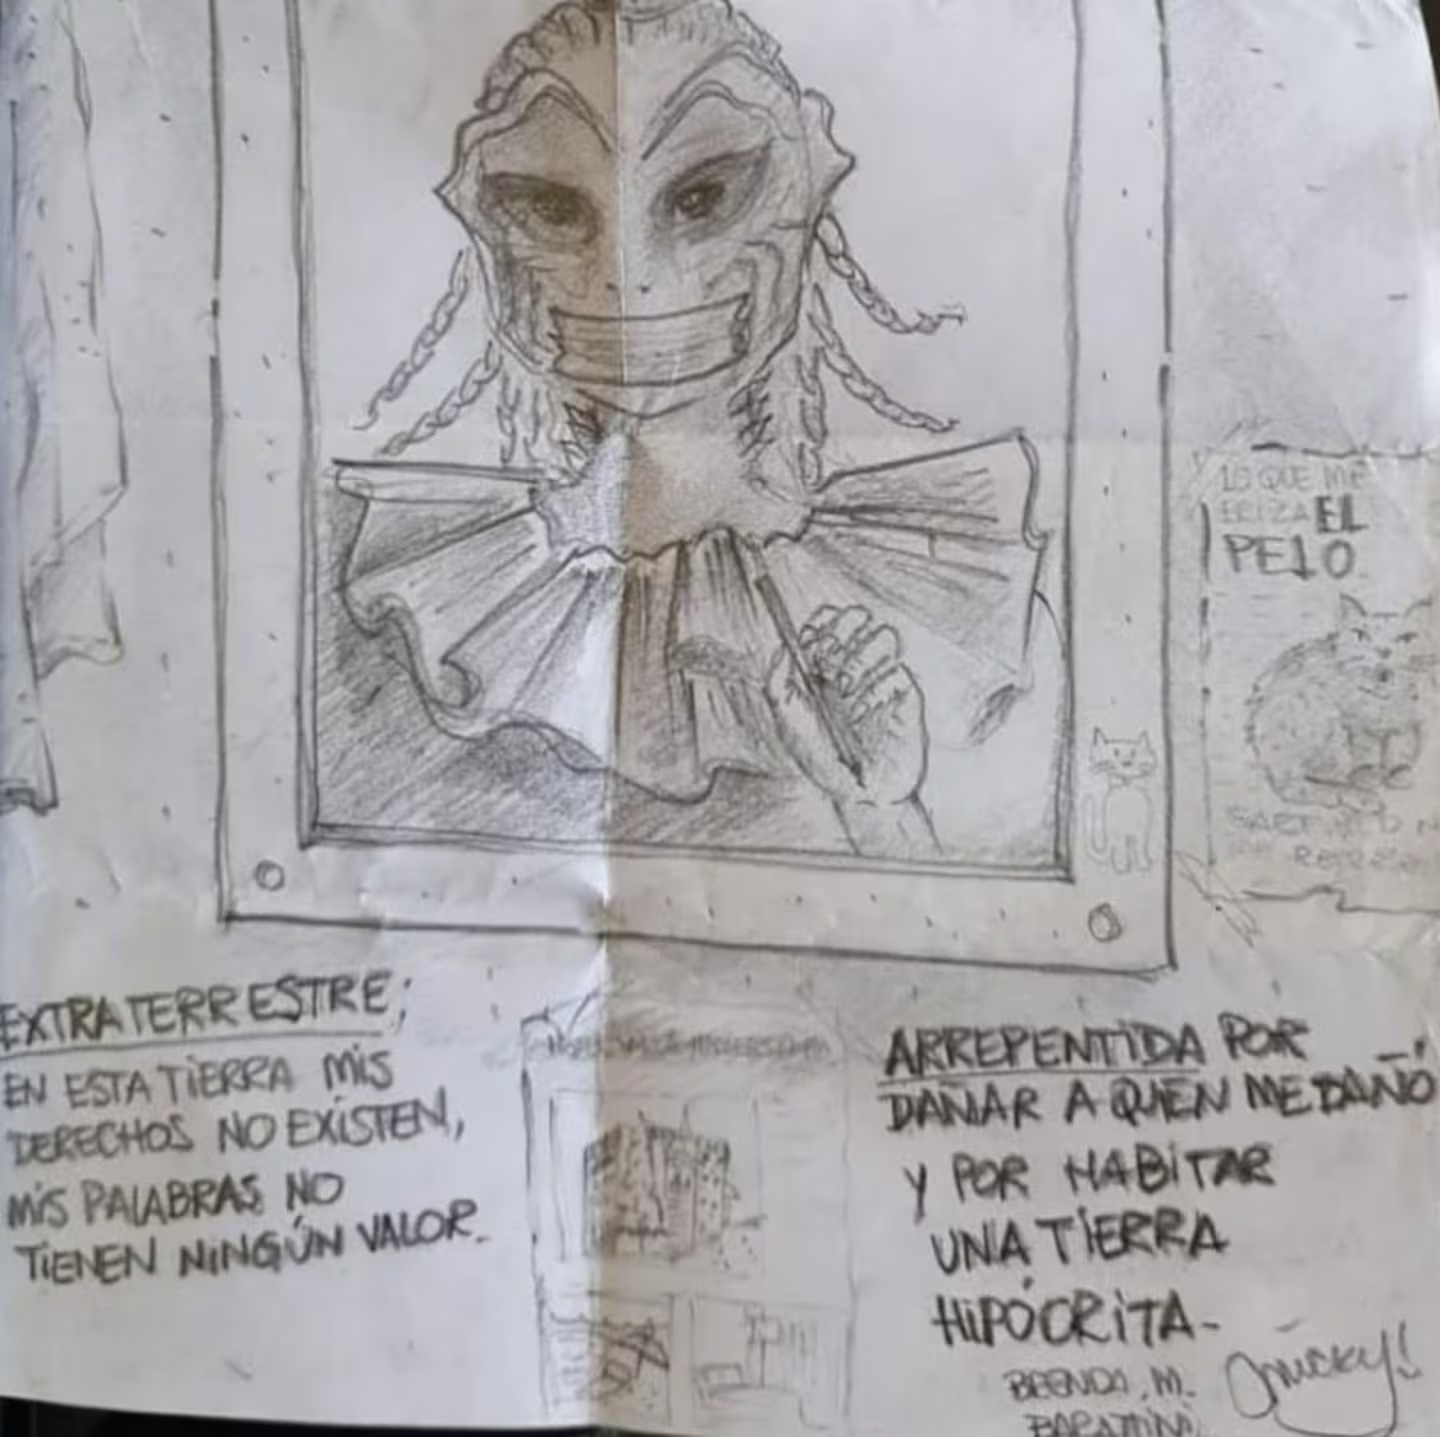 LO QUE ME
ERIZA EL
PELO
EXTRATERRESTRE;
EN ESTA TIERRA MIS
DERECHOS NO EXISTEN,
MIS PALABRAS NO
TIENEN NINGÚN VALOR.
ARREPENTIDA POR
DAÑAR A QUIEN ME DAÑÓ
Y POR HABITAR
UNA TIERRA
HIPÓCRITA-
BRENDA. M.